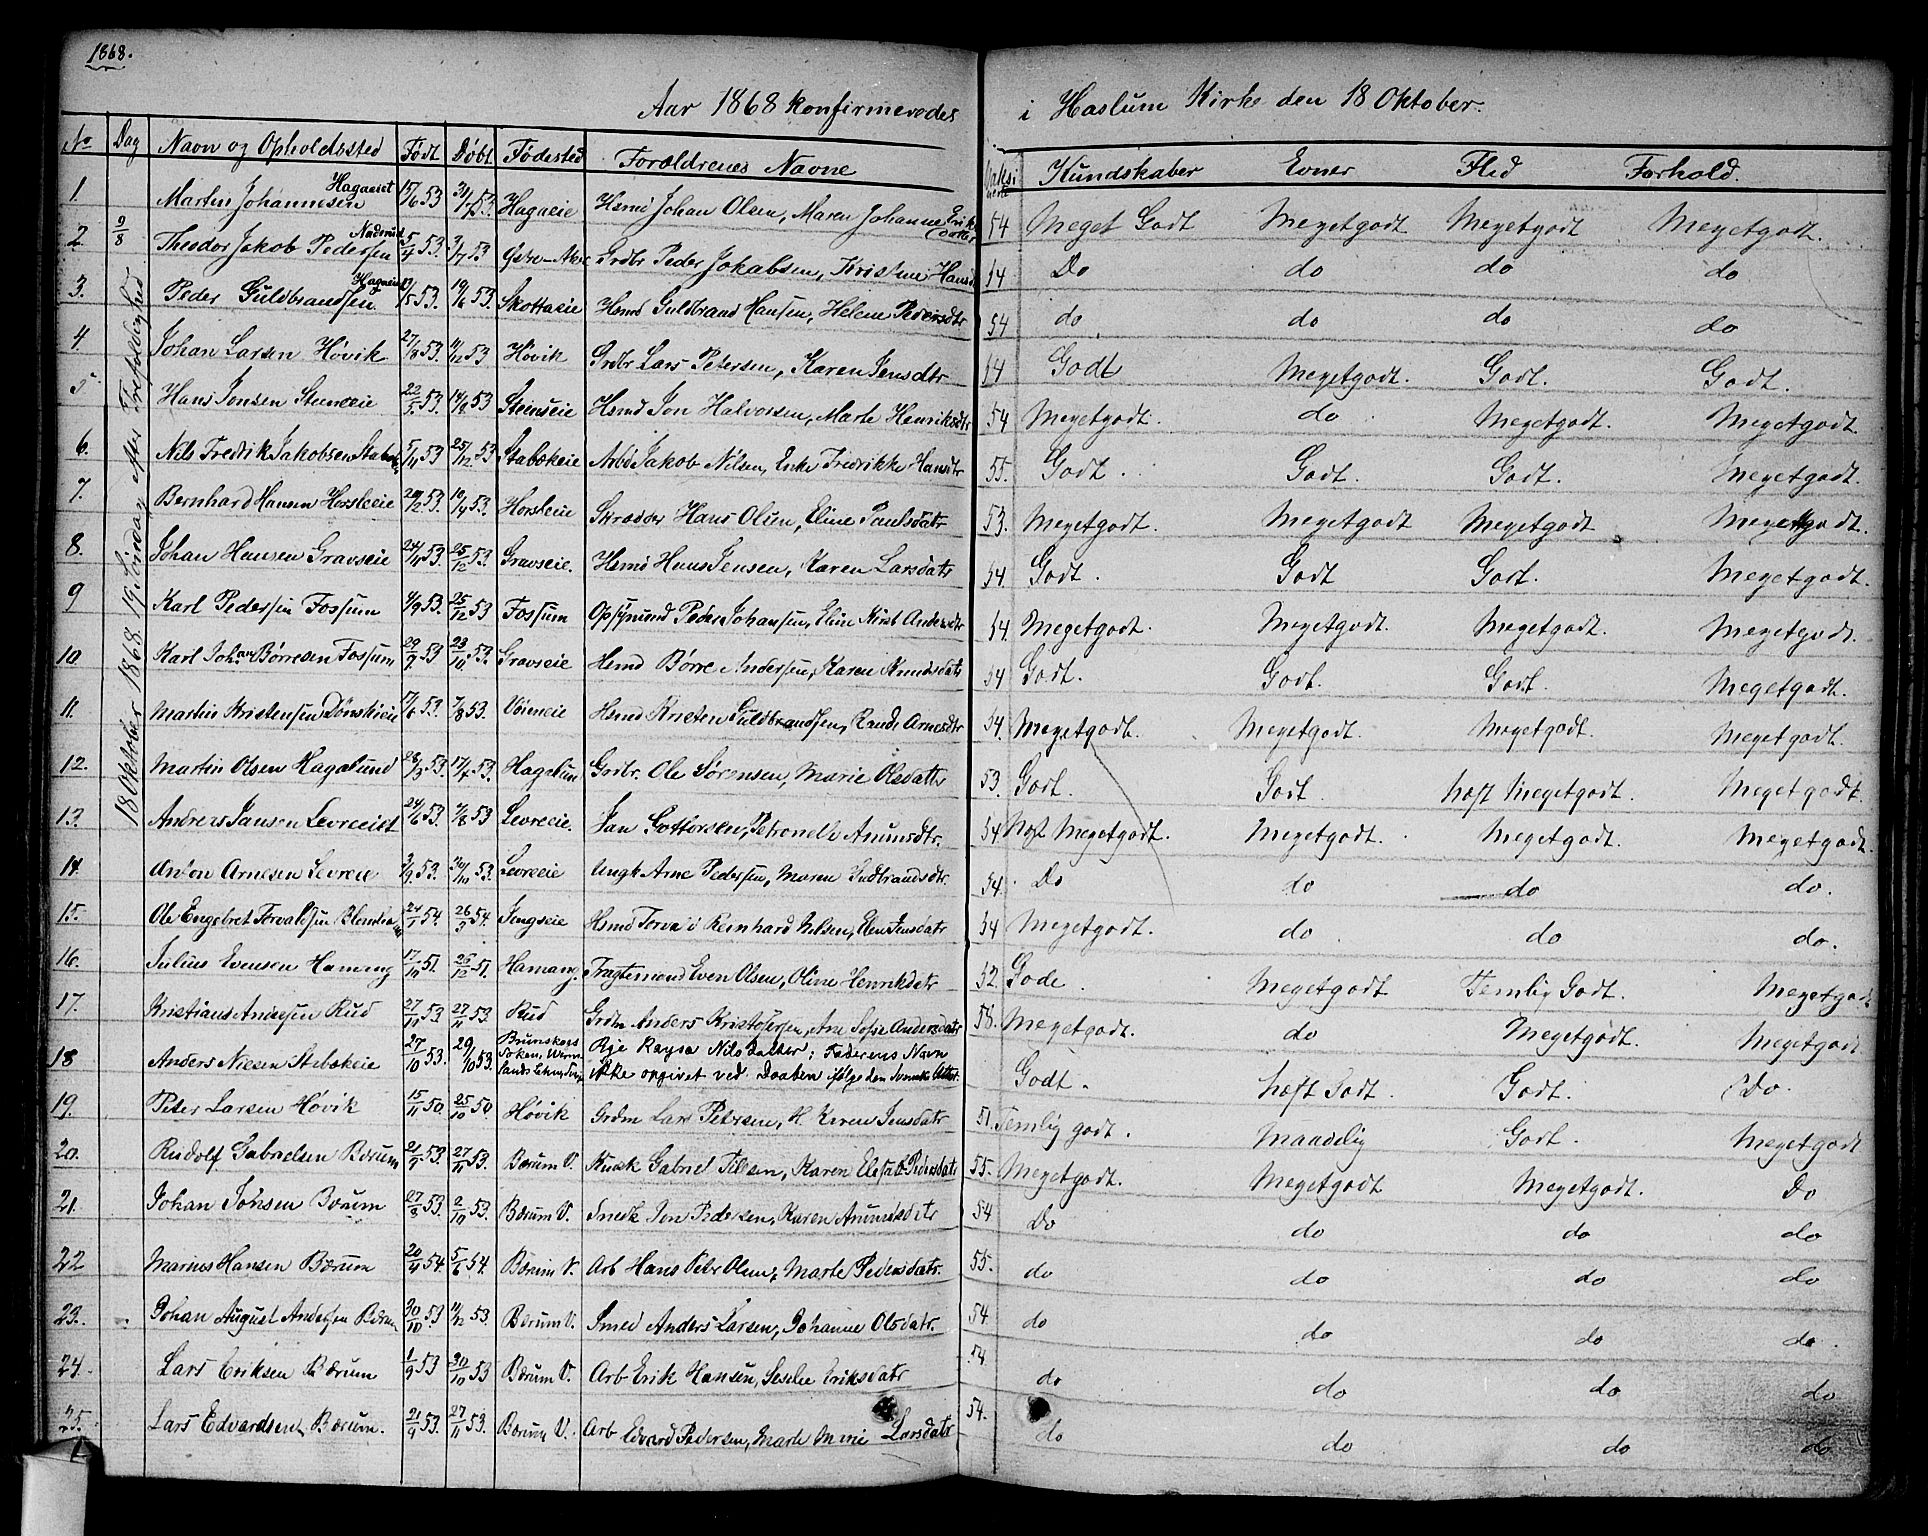 1868.
Aar 1868 konfirmeredes i Haslum Kirke den 18 Oktober.
No Dag Navn og Opholdssted Født Døbt Fødested Forældrenes Navne Kundskaber Evner Flid Forhold.
18 Oktober 1868. 19 Söndag efter Trefoldenghed
1. Martin Johannesen Hagaeiet 15/6 53 31/7 53. Hagaeie Hsmd Johan Olsen, Maren Johanne Eriksdatter 54 Meget Godt Megetgodt Megetgodt Megetgodt.
2. 9/8 Theodor Jakob Pedersen Naderud 5/4 53. 3/7 53 Østre-Aker Grdbr Peder Jakobsen, Kristine Hansd 54 Do do do do
3. Peder Guldbrandsen Hagaeiet 19/5 53. 19/6 53. Skottaeie Hsmd Guldbrand Hansen, Helene Pedersdtr 54 do do do do
4. Johan Larsen Høvik 27/8 53. 11/12 53 Høvik Grdbr Lars Petersen, Karen Jensdtr 54 Godt Megetgodt. Godt. Godt.
5 Hans Jonsen Steinseie 22/5 53. 14/8 53 Steinseie Hsmd Jon Halvorsen, Marte Henriksdtr 54 Megetgodt. do Megetgodt. Megetgodt.
6. Nils Fredrik Jakobsen 5/11 53 25/12 53 Stabækeie Arbd Jakob Nilsen, Fredrikke Hansdtr 55. Godt. Godt. Godt. Megetgodt.
7. Bernhard Hansen Horsleeie 20/2 53. 10/4 53. Horsleeie Skrædder Hans Olsen, Eline Paulsdatr 53. Megetgodt. Megetgodt Megetgodt Megetgodt.
8. Johan Hansen Gravseie 24/11 53. 25/12 53. Gravseie. Hsmd Hans Jensen, Karen Larsdatr 54 Godt. Godt Godt. Megetgodt.
9 Karl Pedersen Fossum 4/9 53. 25/12 53 Fossum Opsynsmd Peder Johansen, 54. Megetgodt. Megetgodt Megetgodt. Megetgodt.
10 Karl Johan Børresen Fossum 29/9 53 23/10 53. Gravseie Hsmd Børre Andersen, Karen Knudsdatr 54 Godt. Godt. Godt. Megetgodt.
11. Martin Kristensen Dønskieie 17/6 53. 7/8 53. Hsmd Kristen Guldbrandsen, Rande Arnesdtr 54. Megetgodt. Megetgodt. Megetgodt. Megetgodt.
12. Martin Olsen Hagalund 28/3 53. 17/4 53. Hagalun Grdbr. Ole Sørensen, Marie Olsdatter 53. Godt. Godt. høst Megetgodt. Megetgodt.
13. Anders Jansen Levreeiet 24/6 53. 7/8 53 Levreeie. Jan Gottorsen, Petronelle Amunsdtr. 54. Høst Megetgodt. Megetgodt. Megetgodt. Megetgodt.
14. Anton Arnesen Levreeie 3/9 53. 30/10 53. Levreeie Ungk Arne Pedersen, Maren Gudbrandsdtr. 54. Do do do do.
15. Ole Engebret Torvaldsen 24/1 54. 26/3 54. Jongseie Hsmd Torvald Reinhard Nilsen, Elen Jensdatr 54 Megetgodt. do do do.
16. Julius Evensen Hamang 17/10 51. 25/12 51. Hamang. Even Olsen, Oline Henrikdatr 52. Gode. Megetgodt Temlig Godt. Megetgodt
17. Kristians Andersen Rud 27/10 53 27/11 53. Rud Grdm Anders Kristofersen, Ane Sofie Andersdatr 53. Megetgodt. do Megetgodt. Megetgodt.
18 Anders Niesen Stabækeie 27/10 53. 29/10 53. Brunskogs Soken, Werm lands Pige Kaysa Nilsdatter; Faderens Navn ikke opgivet ved Daaben ifølge den Svenske Attest. Godt. høst Godt. Godt. Do.
19. Peter Larsen Høvik 15/11 50. 25/10 50 Høvik Grdm Lars Petersen, H. Karen Jensdatr 51. Temlig godt. Maadelig Godt. Megetgodt
20. Rudolf Gabrielsen Bærum 21/9 53. 27/11 53. Bærum V. Kusk Gabriel Tellesen, Karen Elisab. Pedersdatr 55. Megetgodt. Megetgodt Megetgodt. Do
21. Johan Johsen Bærum 27/8 53. 2/10 53. Bærum V. Snedk Jon Pedersen, Karen Amunsdatr 54 Do do do do
22 Marius Hansen Bærum 20/4 54. 5/6 54. Bærum V. Arb Hans Petr Olsen, Marte Pedersdatr. 55. do do do do
23. Johan August Andersen Bærum 30/10 53 11/12 53. Bærum V. Smed Anders Larsen, Johanne Olsdatr. 54. do do do do.
24. Lars Eriksen Bærum 1/9 53 30/10 53 Bærum V. Arb Erik Hansen, Eriksdatr 54. do do do do
25. Lars Edvardsen Bærum. 21/9 53. 27/11 53. Bærum V. Arb Edvard Pedersen, Marte Marie Larsdatr 54. do do do do